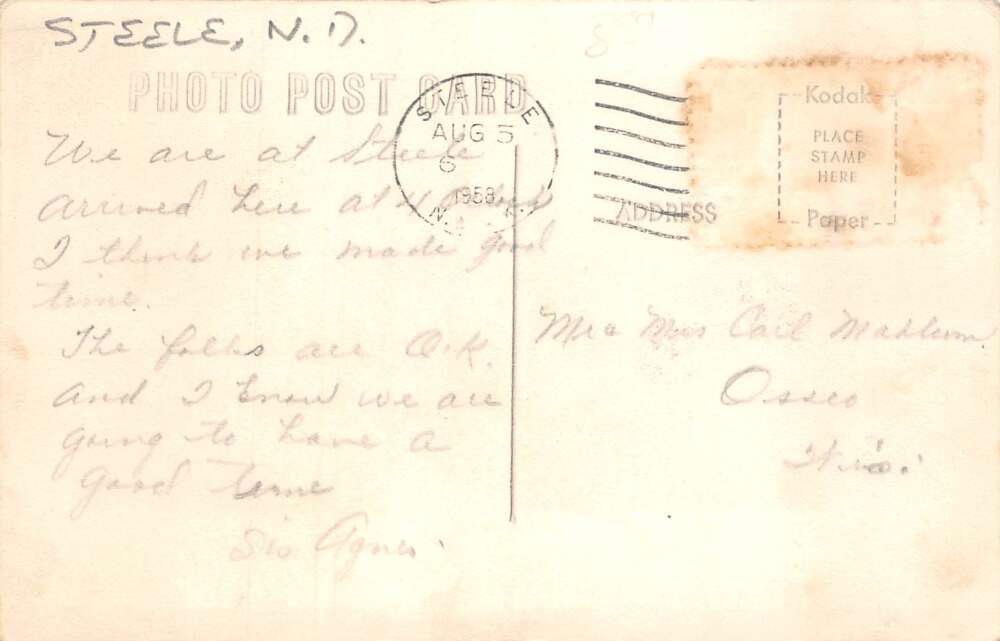 STEELE, N.D.
PHOTO POST CARD
STEELE
AUG 5
6
1958
N.
Kodak
PLACE
STAMP
HERE
Paper
ADDRESS
We are at Steele
arrived here at 4
I think we made good
time.
The folks are O.K.
and I know we are
going to have a
good time
Sis Agnes.
Mr & Mrs Carl
Osseo
Wis.